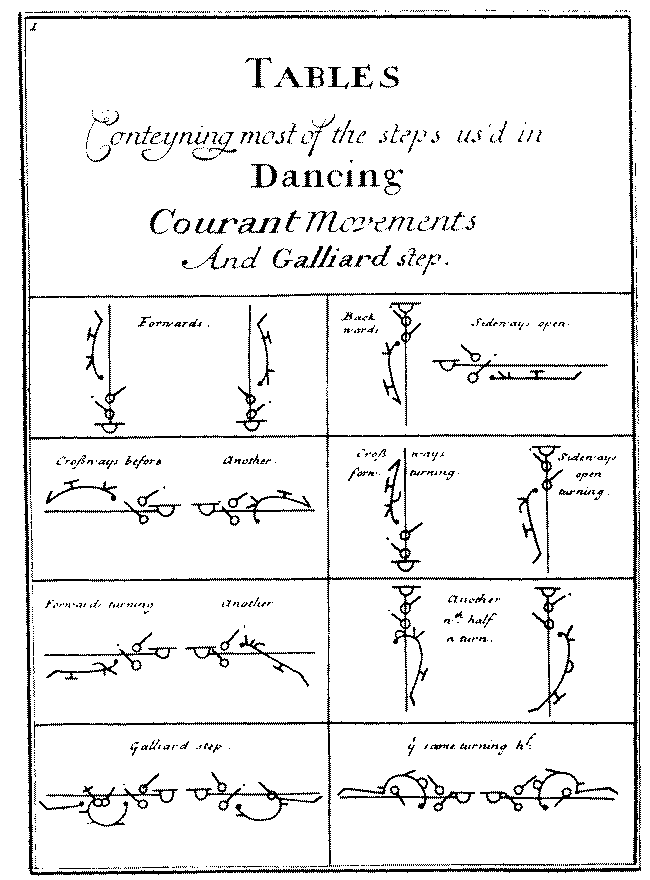 1
TABLES
Conteyning most of the steps us'd in
Dancing
Courant Movements
And Galliard step.
Forwards.
Back
wards
Sideways open.
Croßways before
Another.
Croß ways
forw. turning.
Sideways
open
turning.
Forwards turning
Another
Another
wth. half
a turn.
Galliard step.
ẏ same turning hf.